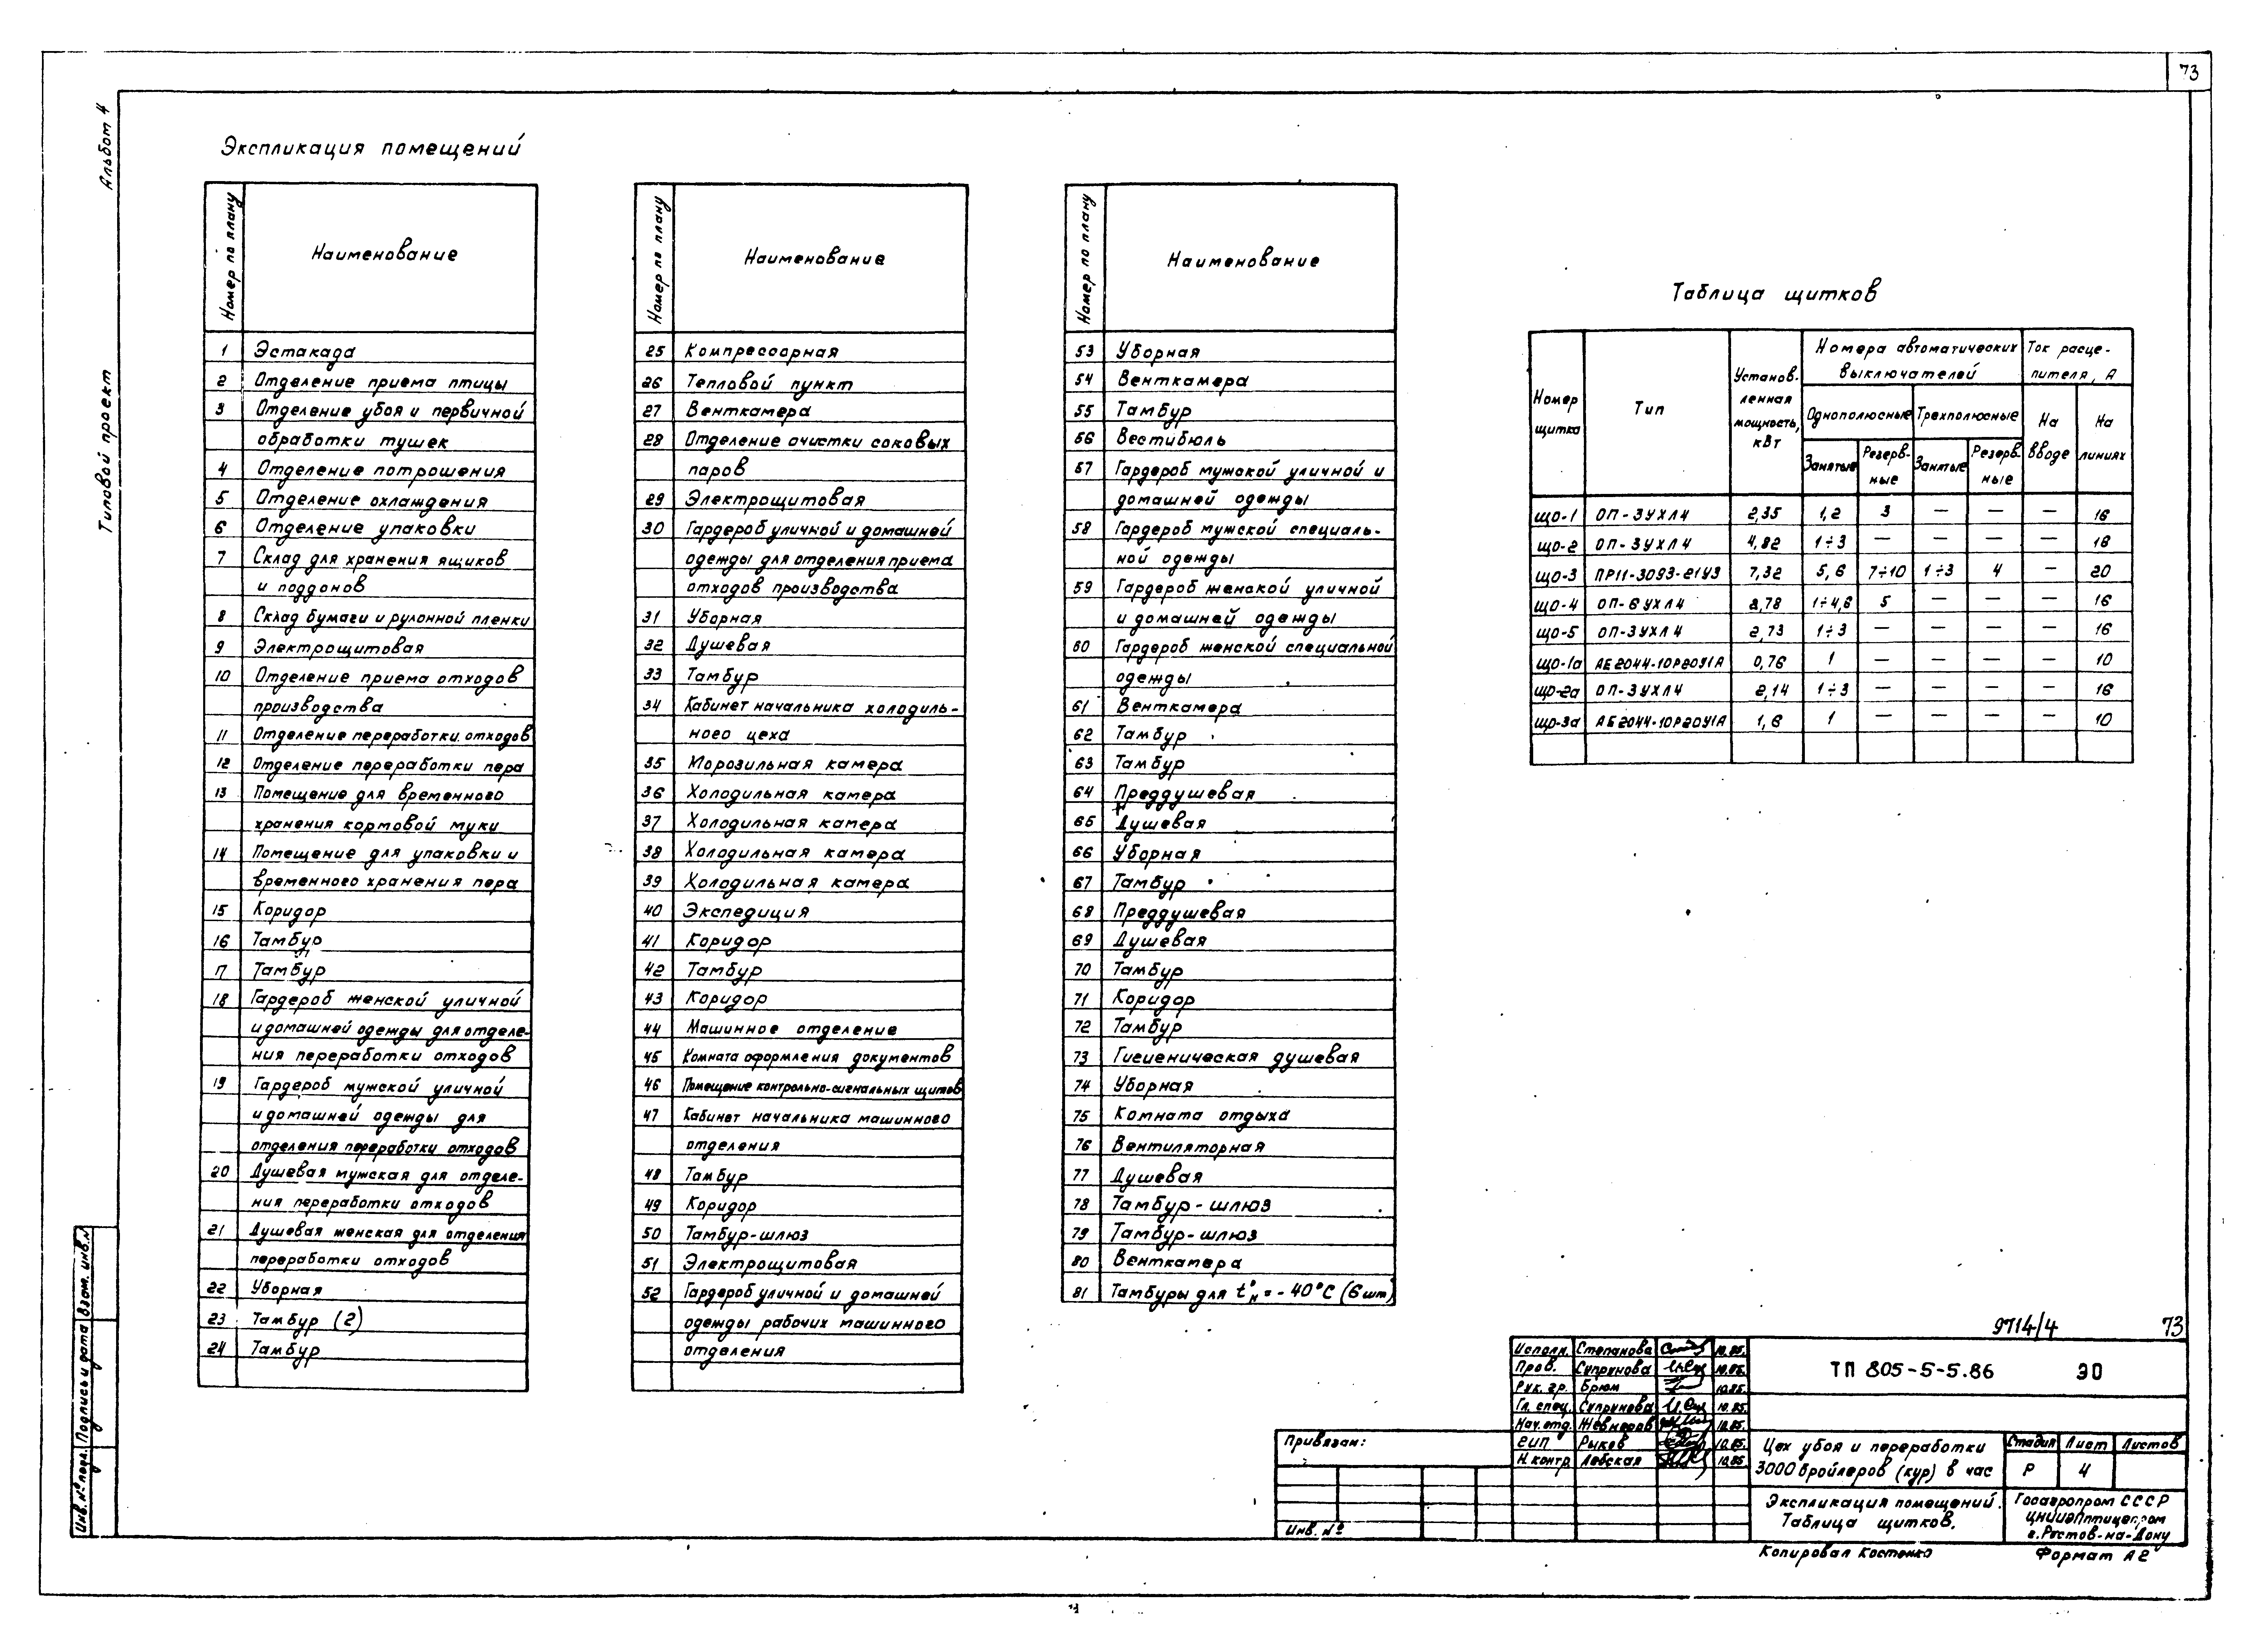 73
Альбом 4
Типовой проект
Экспликация помещений
Номер по плану Наименование
1 Эстакада
2 Отделение приема птицы
3 Отделение убоя и первичной
обработки тушек
4 Отделение потрошения
5 Отделение охлаждения
6 Отделение упаковки
7 Склад для хранения ящиков
и поддонов
8 Склад бумаги и рулонной пленки
9 Электрощитовая
10 Отделение приема отходов
производства
11 Отделение переработки отходов
12 Отделение переработки пера
13 Помещение для временного
хранения кормовой муки
14 Помещение для упаковки и
временного хранения пера
15 Коридор
16 Тамбур
17 Тамбур
18 Гардероб женской уличной
и домашней одежды для отделе-
ния переработки отходов
19 Гардероб мужской уличной
и домашней одежды для
отделения переработки отходов
20 Душевая мужская для отделе-
ния переработки отходов
21 Душевая женская для отделения
переработки отходов
22 Уборная
23 Тамбур (2)
24 Тамбур
Номер по плану Наименование
25 Компрессорная
26 Тепловой пункт
27 Венткамера
28 Отделение очистки соковых
паров
29 Электрощитовая
30 Гардероб уличной и домашней
одежды для отделения приема
отходов производства
31 Уборная
32 Душевая
33 Тамбур
34 Кабинет начальника холодиль-
ного цеха
35 Морозильная камера
36 Холодильная камера
37 Холодильная камера
38 Холодильная камера
39 Холодильная камера
40 Экспедиция
41 Коридор
42 Тамбур
43 Коридор
44 Машинное отделение
45 Комната оформления документов
46 Помещение контрольно-сигнальных щитов
47 Кабинет начальника машинного
отделения
48 Тамбур
49 Коридор
50 Тамбур-шлюз
51 Электрощитовая
52 Гардероб уличной и домашней
одежды рабочих машинного
отделения
Номер по плану Наименование
53 Уборная
54 Венткамера
55 Тамбур
56 Вестибюль
57 Гардероб мужской уличной и
домашней одежды
58 Гардероб мужской специаль-
ной одежды
59 Гардероб женской уличной
и домашней одежды
60 Гардероб женской специальной
одежды
61 Венткамера
62 Тамбур
63 Тамбур
64 Преддушевая
65 Душевая
66 Уборная
67 Тамбур
68 Преддушевая
69 Душевая
70 Тамбур
71 Коридор
72 Тамбур
73 Гигиеническая душевая
74 Уборная
75 Комната отдыха
76 Вентиляторная
77 Душевая
78 Тамбур-шлюз
79 Тамбур-шлюз
80 Венткамера
81 Тамбуры для t°н = -40°С (6 шт)
Таблица щитков
Номер щитка Тип Установ-ленная мощность, кВт Номера автоматических выключателей Ток расце-пителя, А
Однополюсные Трехполюсные На вводе На линиях
Занятые Резерв-ные Занятые Резерв-ные
ЩО-1 ОП-3УХЛ4 2,35 1,2 3 — — — 16
ЩО-2 ОП-3УХЛ4 4,82 1÷3 — — — — 16
ЩО-3 ПР11-3093-21У3 7,32 5,6 7÷10 1÷3 4 — 20
ЩО-4 ОП-6УХЛ4 2,78 1÷4,6 5 — — — 16
ЩО-5 ОП-3УХЛ4 2,73 1÷3 — — — — 16
ЩО-1а АЕ2044-10Р20У1А 0,76 1 — — — — 10
ЩО-2а ОП-3УХЛ4 2,14 1÷3 — — — — 16
ЩО-3а АЕ2044-10Р20У1А 1,6 1 — — — — 10
9714/4 73
Исполн. Степанова 10.85.
Пров. Супрунова 10.85.
Рук. гр. Брюм 10.85.
Гл. спец. Супрунова 10.85.
Нач. отд. Жевнеров 10.85.
ГИП Рыков 10.85.
Н. контр. Левская 10.85
ТП 805-5-5.86 ЭО
Привязан:
Инв. №
Цех убоя и переработки
3000 бройлеров (кур) в час
Стадия Лист Листов
Р 4
Экспликация помещений.
Таблица щитков.
Госагропром СССР
ЦНИИЭПптицепром
г. Ростов-на-Дону
Копировал Костенко
Формат А2
Инв. № подл. Подпись и дата Взам. инв. №